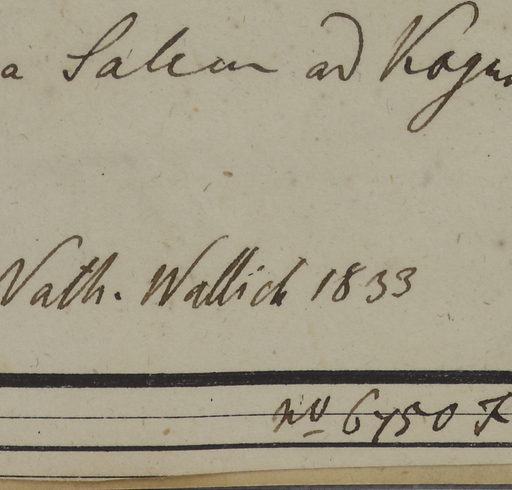 a Salem ad
Nath. Wallich 1833
No 6750